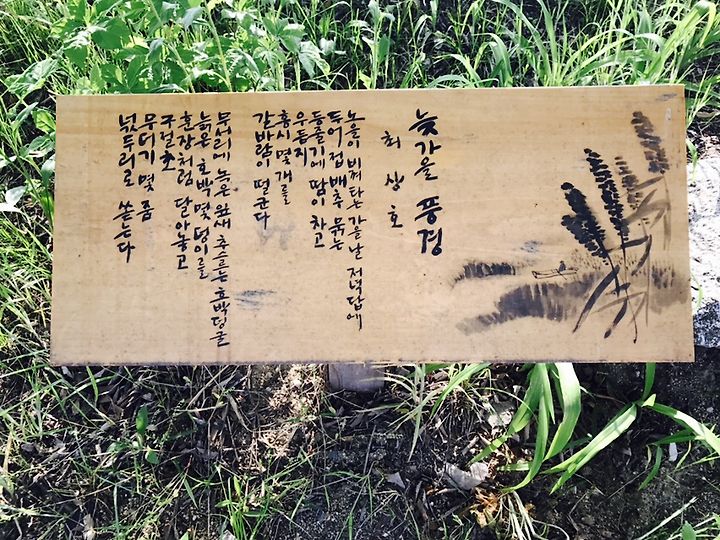 늦가을 풍경
최상호
노을이 비껴 타는 가을날 저녁답에
두어 접 배추 묶는
등줄기에 땀이 차고
우듬지
홍시 몇 개를
갈바람이 떨군다
무서리에 녹은 잎새 추스르는 호박덩굴
늙은 호박 몇 덩이를
훈장처럼 달아놓고
구절초
무더기 몇 줌
넋두리로 쏟는다